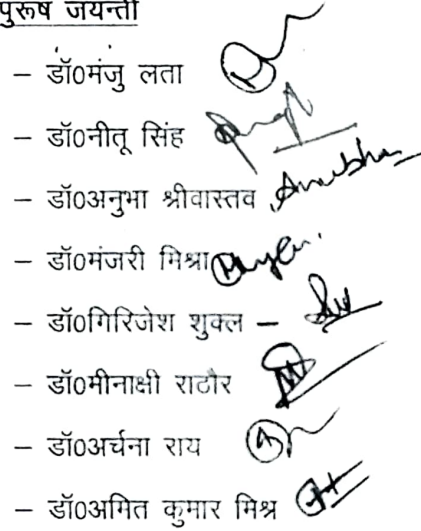 पुरूष जयन्ती
– डॉ0मंजु लता
– डॉ0नीतू सिंह
– डॉ0अनुभा श्रीवास्तव Anubha
– डॉ0मंजरी मिश्रा
– डॉ0गिरिजेश शुक्ल –
– डॉ0मीनाक्षी राठौर
– डॉ0अर्चना राय
– डॉ0अमित कुमार मिश्र